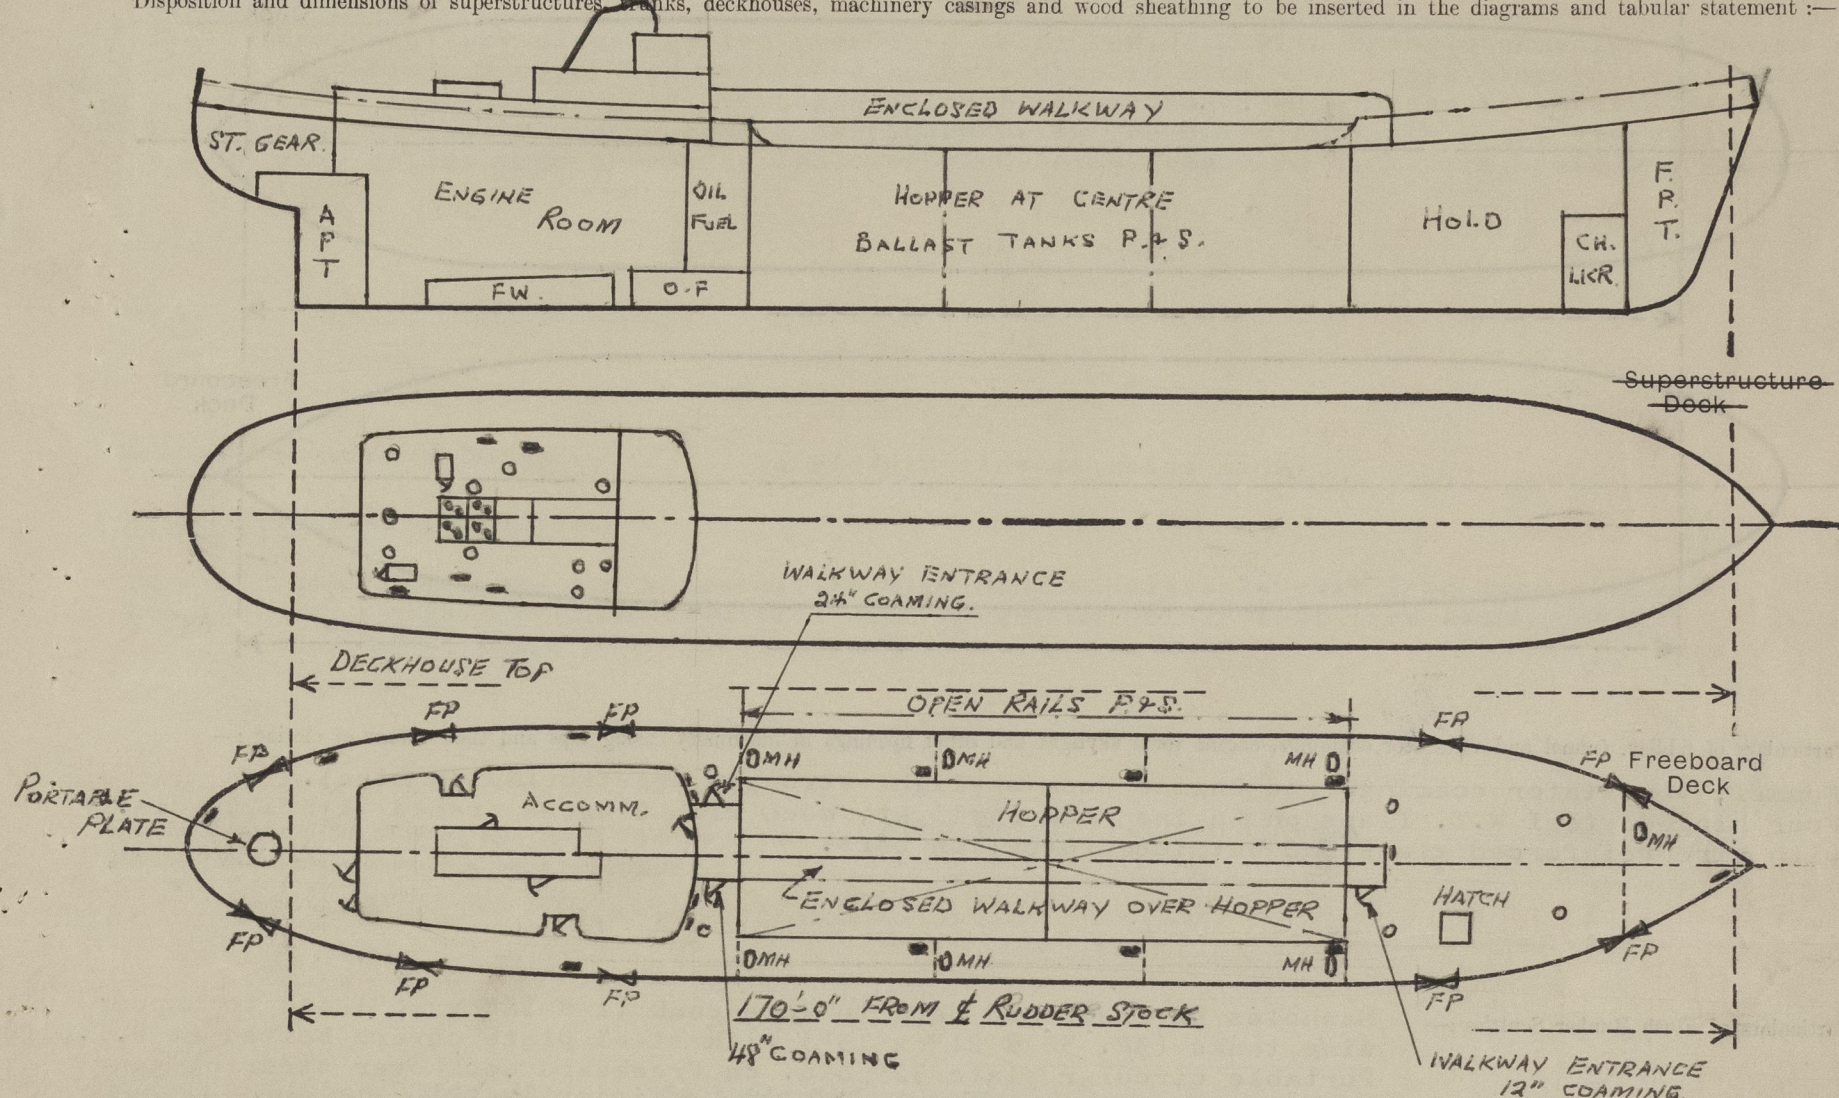 Disposition and dimensions of superstructures, trunks, deckhouses, machinery casings and wood sheathing to be inserted in the diagrams and tabular statement :—
ENCLOSED WALKWAY
ST. GEAR.
A
P
T
ENGINE
ROOM
OIL
FUEL
FW.
O.F
HOPPER AT CENTRE
BALLAST TANKS P. & S.
HOLD
CH.
LKR.
F.
P.
T.
Superstructure
Deck
WALKWAY ENTRANCE
24" COAMING.
DECKHOUSE TOP
OPEN RAILS P. & S.
FP
FP
FP
FP
FP
Freeboard
Deck
PORTABLE
PLATE
ACCOMM.
MH
MH
MH
HOPPER
MH
ENCLOSED WALKWAY OVER HOPPER
HATCH
MH
MH
MH
FP
FP
FP
FP
FP
170'-0" FROM ℄ RUDDER STOCK
48" COAMING
WALKWAY ENTRANCE
12" COAMING.